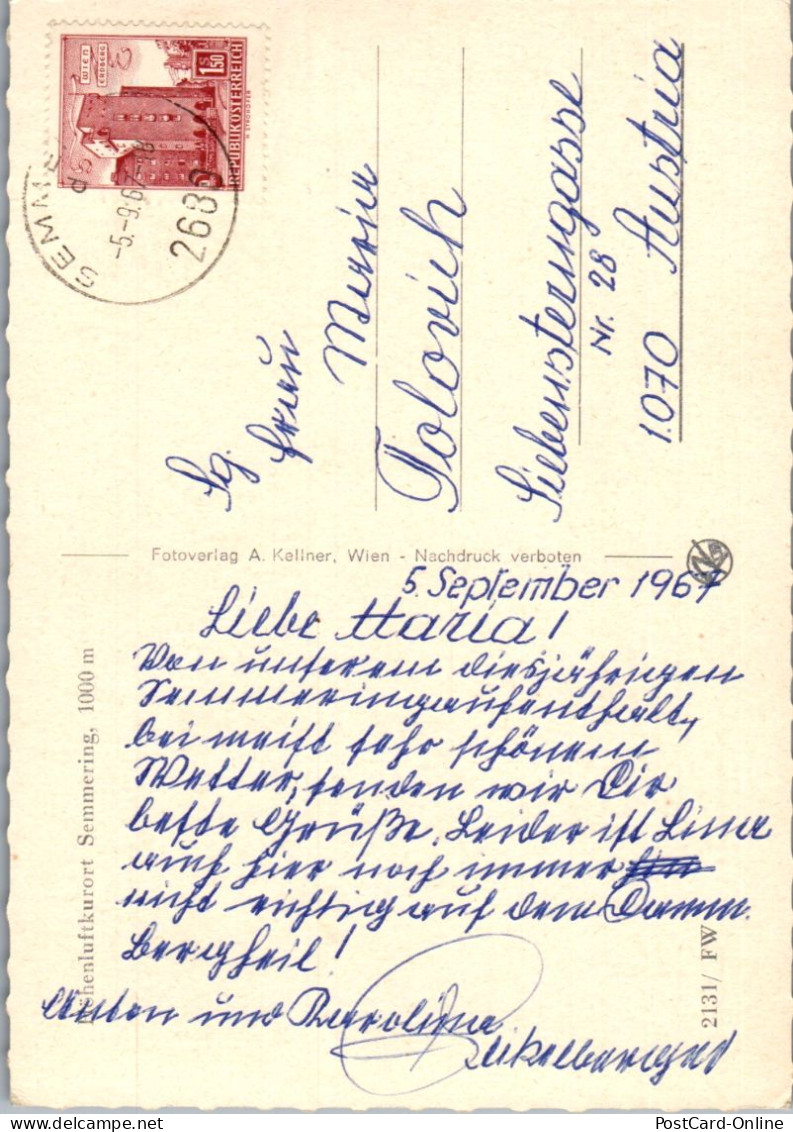 WIEN
ERDBERG
S 1.50
REPUBLIK ÖSTERREICH
-5.-9.67-18
2680
Sg. Frau
Maria
Tolovich
Siebensterngasse
Nr. 28
1070 Austria
Fotoverlag A. Kellner, Wien - Nachdruck verboten
Höhenluftkurort Semmering, 1000 m
2131/ FW
5. September 1967
Liebe Maria!
Von unserem diesjährigen
Semmeringaufenthalt,
bei meist sehr schönem
Wetter, senden wir Dir
beste Grüße. Leider ist Lina
auch hier noch immer
nicht richtig auf dem Damm.
Bergheil!
Anton und Karolina
PostCard-Online